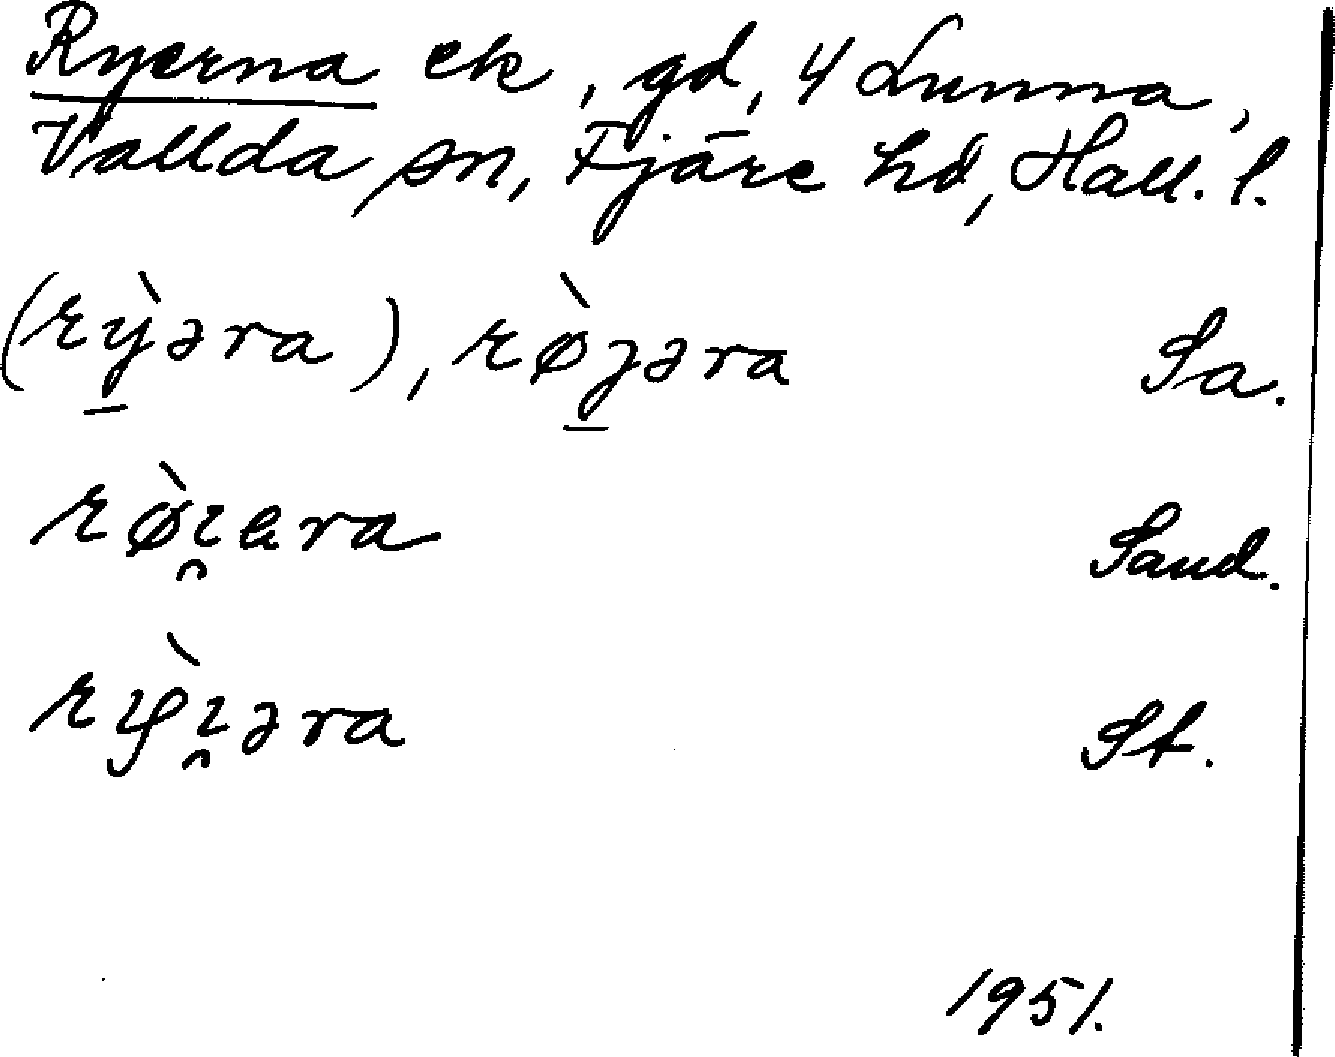 Ryerna ek, gd, 4 Lunna,
Vallda sn, Fjäre hd, Hall. l.
(rỳ̠əra), rø̀ȷ̠əra Sa.
rø̀ɩ̯era Sand.
rỳɩ̯əra St.
1951.